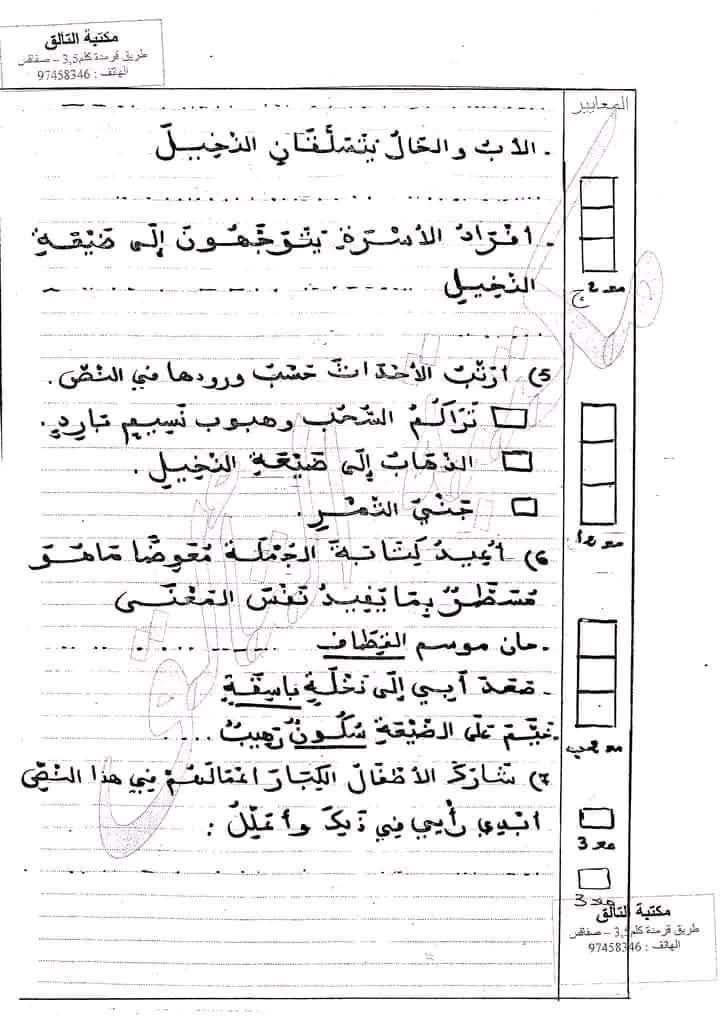 مكتبة التالق
طريق قرمدة كلم3,5 – صفاقس
الهاتف : 97458346
المعايير
- الأبُ والخالُ يَتَسَلَّقَانِ النَّخِيلَ
- أَفْرَادُ الأُسْرَةِ يَتَوَجَّهُونَ إِلَى ضَيْعَةِ
النَّخِيلِ
مع 2ج
5) أُرَتِّبُ الأَحْدَاثَ حَسَبَ ورودها في النَّصِّ.
تَرَاكُمُ السُّحُبِ وهبوب نَسِيمٍ بَارِدٍ.
الذهَابُ إلَى ضَيْعَةِ النَّخِيلِ.
جَنْيُ التَّمْرِ.
مع 2أ
6) أُعِيدُ كِتَابَةَ الجُمْلَةِ مُعَوِّضًا مَاهُوَ
مُسَطَّرٌ بِمَا يُفِيدُ نَفْسَ المَعْنَى
- حان موسم القِطَاف
- صَعَدَ أَبِي إلَى نَخْلَةٍ بَاسِقَةٍ
- خَيَّمَ عَلَى الضَّيْعَةِ سُكُونٌ رَهِيبٌ
مع 2ب
7) شَارَكَ الأَطْفَالُ الكِبَارَ اعْمَالَهُمْ فِي هذا النَّصِّ
أُبْدِي رَأْيِي فِي ذَلِكَ وأُعَلِّلُ :
مع 3
مع 3
مكتبة التالق
طريق قرمدة كلم3,5 – صفاقس
الهاتف : 97458346